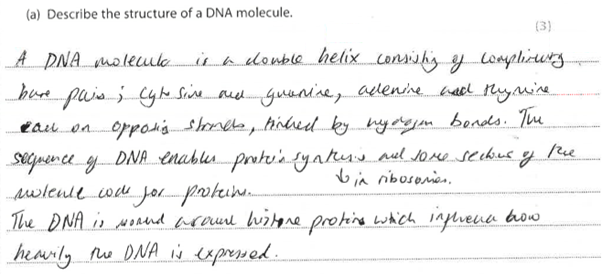 (a) Describe the structure of a DNA molecule.
(3)
A DNA molecule is a double helix consisting of complimentary
base pairs; cytosine and guanine, adenine and thymine
each on opposing strands, linked by hydrogen bonds. The
sequence of DNA enables protein synthesis and some sections of the
molecule code for proteins. ↳ in ribosomes.
The DNA is wound around histone proteins which influence how
heavily the DNA is expressed.